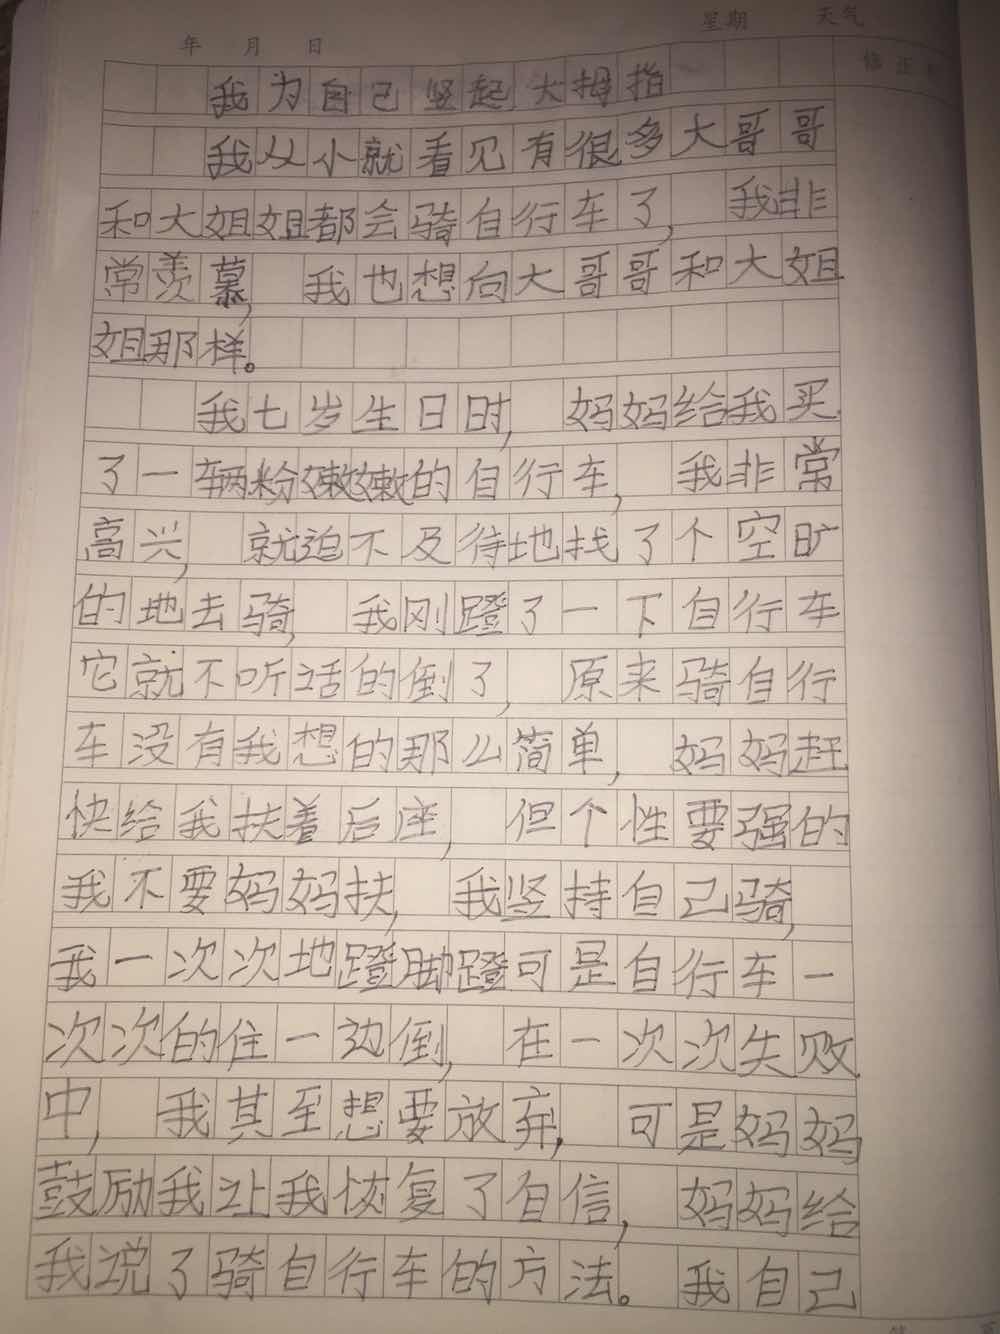 年 月 日 星期 天气
修正
我为自己竖起大拇指
我从小就看见有很多大哥哥
和大姐姐都会骑自行车了,我非
常羡慕,我也想向大哥哥和大姐
姐那样。
我七岁生日时,妈妈给我买
了一辆粉嫩嫩的自行车,我非常
高兴,就迫不及待地找了个空旷
的地去骑,我刚蹬了一下自行车
它就不听话的倒了,原来骑自行
车没有我想的那么简单,妈妈赶
快给我扶着后座,但个性要强的
我不要妈妈扶,我竖持自己骑,
我一次次地蹬脚蹬可是自行车一
次次的住一边倒,在一次次失败
中,我其至想要放弃,可是妈妈
鼓励我让我恢复了自信,妈妈给
我说了骑自行车的方法。我自己